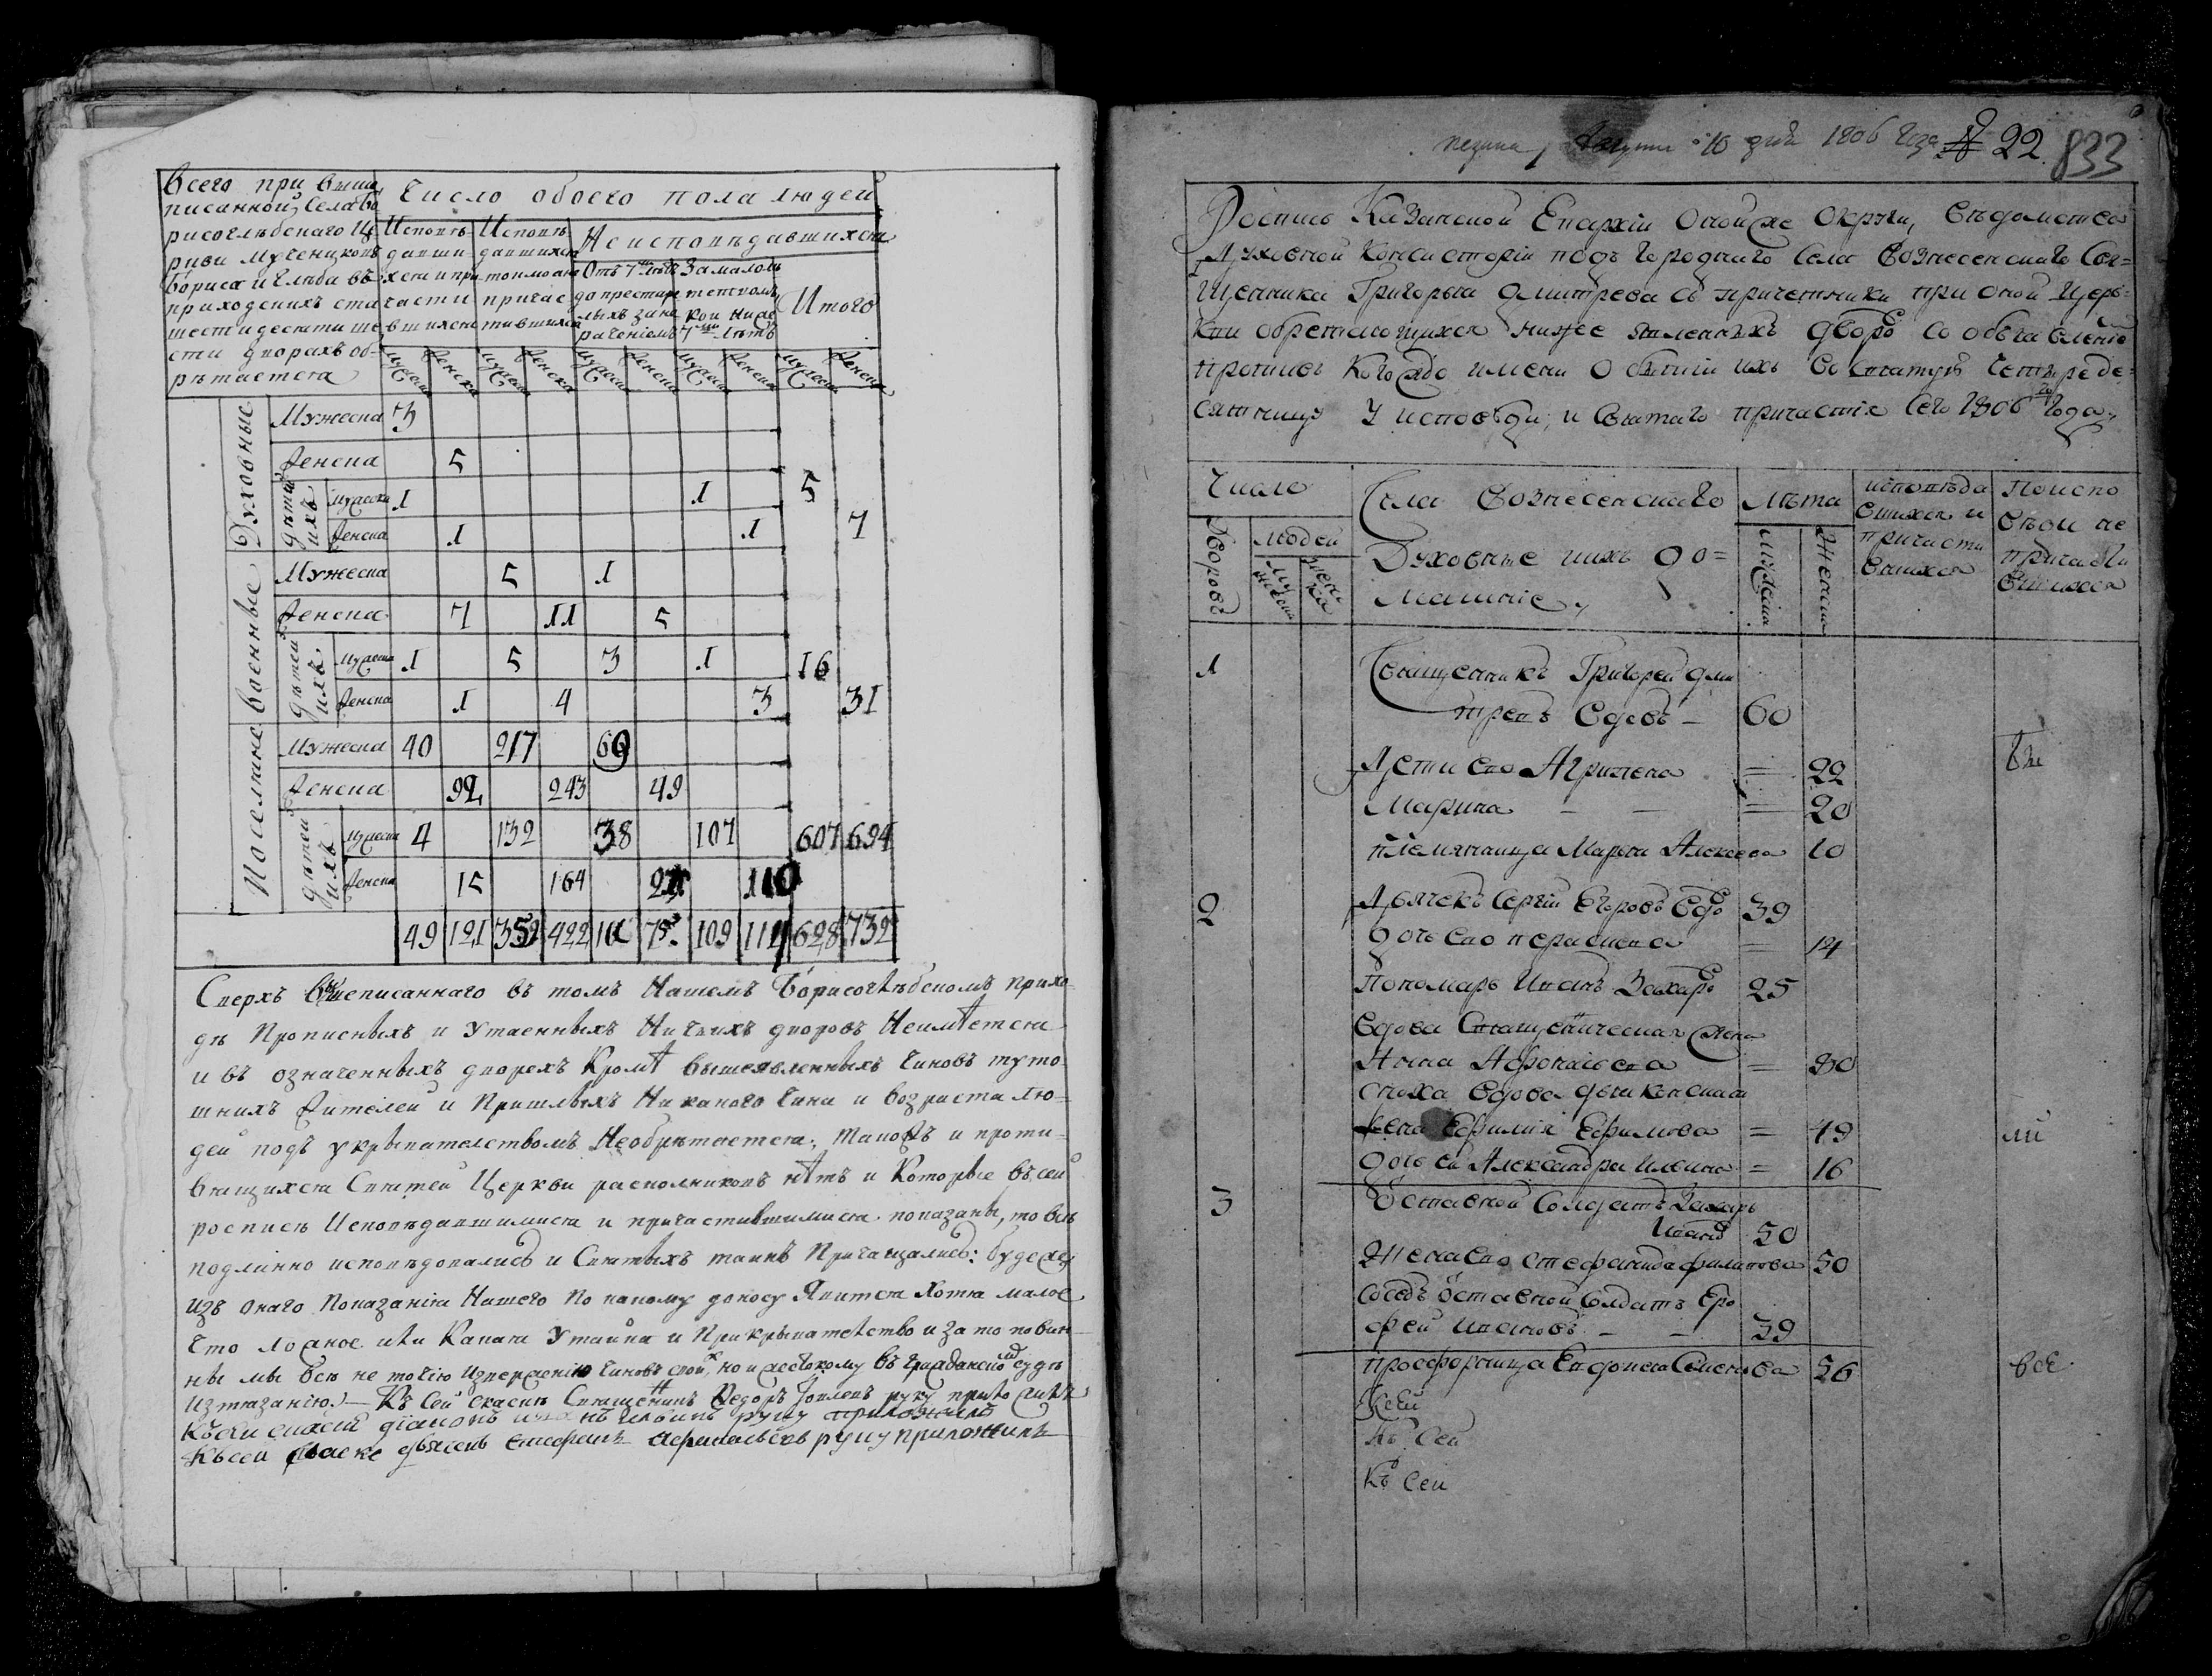 Всего при выше
писанной Села Бо
рисоглѣбскаго Це
ркви Мученикопъ
Бориса и Глѣба въ
приходскихъ ста
шестидесяти ше
сти дворахъ об-
рѣтается
Число обоего пола людей
Исповѣ
давши
хся и при
части
вшихся
Исповѣ
давшихся
токмо а не
причас
тившихся
Не исповѣдавшихся
Отъ 7ми лѣтъ
до престар
лыхъ за не
рачениемъ
За малолѣ
тствомъ
кои ниже
7ми лѣтъ
Итого
мужеска женска мужеска женска мужеска женска мужеска женска мужеска женска
Духовные
Мужеска 3
Женска 5
дѣтей ихъ
мужеска 1 1 5
женска 1 1 7
военные
Мужеска 5 1
Женска 7 11 5
дѣтей ихъ
мужеска 1 5 3 1 16
женска 1 4 3 31
Поселяне
Мужеска 40 217 60
Женска 92 243 49
дѣтей ихъ
мужеска 4 132 38 107 607 694
женска 15 164 110
49 121 352 422 109 628 732
Сверхъ вышеписаннаго въ томъ Нашемъ Борисоглѣбскомъ прихо-
дѣ Прописныхъ и Утаенныхъ Ничьихъ дворовъ Неимѣется
и въ означенныхъ дворехъ Кромѣ вышеявленныхъ чиновъ туто-
шнихъ жителей и Пришлыхъ Никакого Чина и возраста лю-
дей подъ укрывателствомъ Необрѣтается: такожъ и проти-
вящихся Святей Церкви раскольниковъ нѣтъ и Которые въ сей
росписѣ Исповѣдавшимися и причастившимися показаны, то всѣ
подлинно исповѣдовались и Святыхъ таинъ Причащались: буде же
изъ онаго Показания Нашего По какому доносу Явится Хотя малое
Что ложное или Какая Утайка и Прикрывателство и за то повин-
ны мы всѣ не точию Извержению чиновъ своихъ, но и жестокому въ гражданскомъ судѣ
изтязанию.— Къ сей сказкѣ Священникъ Федоръ руку приложилъ
Къ сей сказкѣ диаконъ руку приложилъ
Къ сей скаске дьячекъ Стефанъ Афанасьевъ руку приложилъ
Августа 10 дня 1806 года № 22 833
Роспись Казанской Епархіи Оной же Округи, вѣдомства
Духовной Консисторіи подъ Городнаго Села Вознесенскаго Свя=
щенника Григорья Дмитрева съ причетники при оной Церь=
кви обретающихся ниже явленныхъ дворо со объявлениемъ
противъ Когождо имени О бытіи ихъ во Святую Четыреде=
сятницу У исповѣди, и Святаго причастія Сего 1806го Года,
Число
Дворовъ
Людей
Мужеска
Женска
Села Вознесенскаго
Духовные и ихъ до=
машніе,
Лѣта
Мужеска
Женска
исповѣда
вшихся и
причасти
вшихся
По испо
вѣди не
причасти
вшихся
1 Священникъ Григорей Дми
тревъ вдовъ – 60
Дети его Агрипена = 22
Марина – – = 20
племянница Марья Алексеева 10
2 Дьячекъ Сергій Егоровъ вдо 39
дочь его – 14
Пономарь Иванъ Захаро 25
вдова Священическая жена
Анна Афонасьева = 80
сноха вдова дьяконская
жена Ефимія Ефимова = 49
дочь ей Александра Ильина = 16
3 Отставной Солдатъ Захаръ
Ивано 50
Жена его Стефанида Филипова 50
Соседъ отставной Солдатъ Еро
фей Ивановъ – – 39
просфорница Евдокея Семенова 56
Вы
ли
все
Ксей
Къ Сей
Къ Сеи